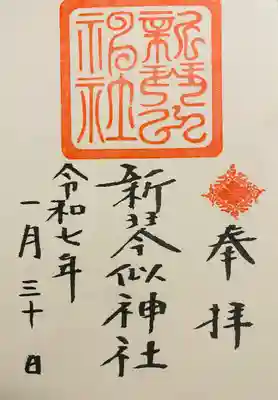 奉拝
新琴似
神社
新琴似神社
令和七年
一月三十日